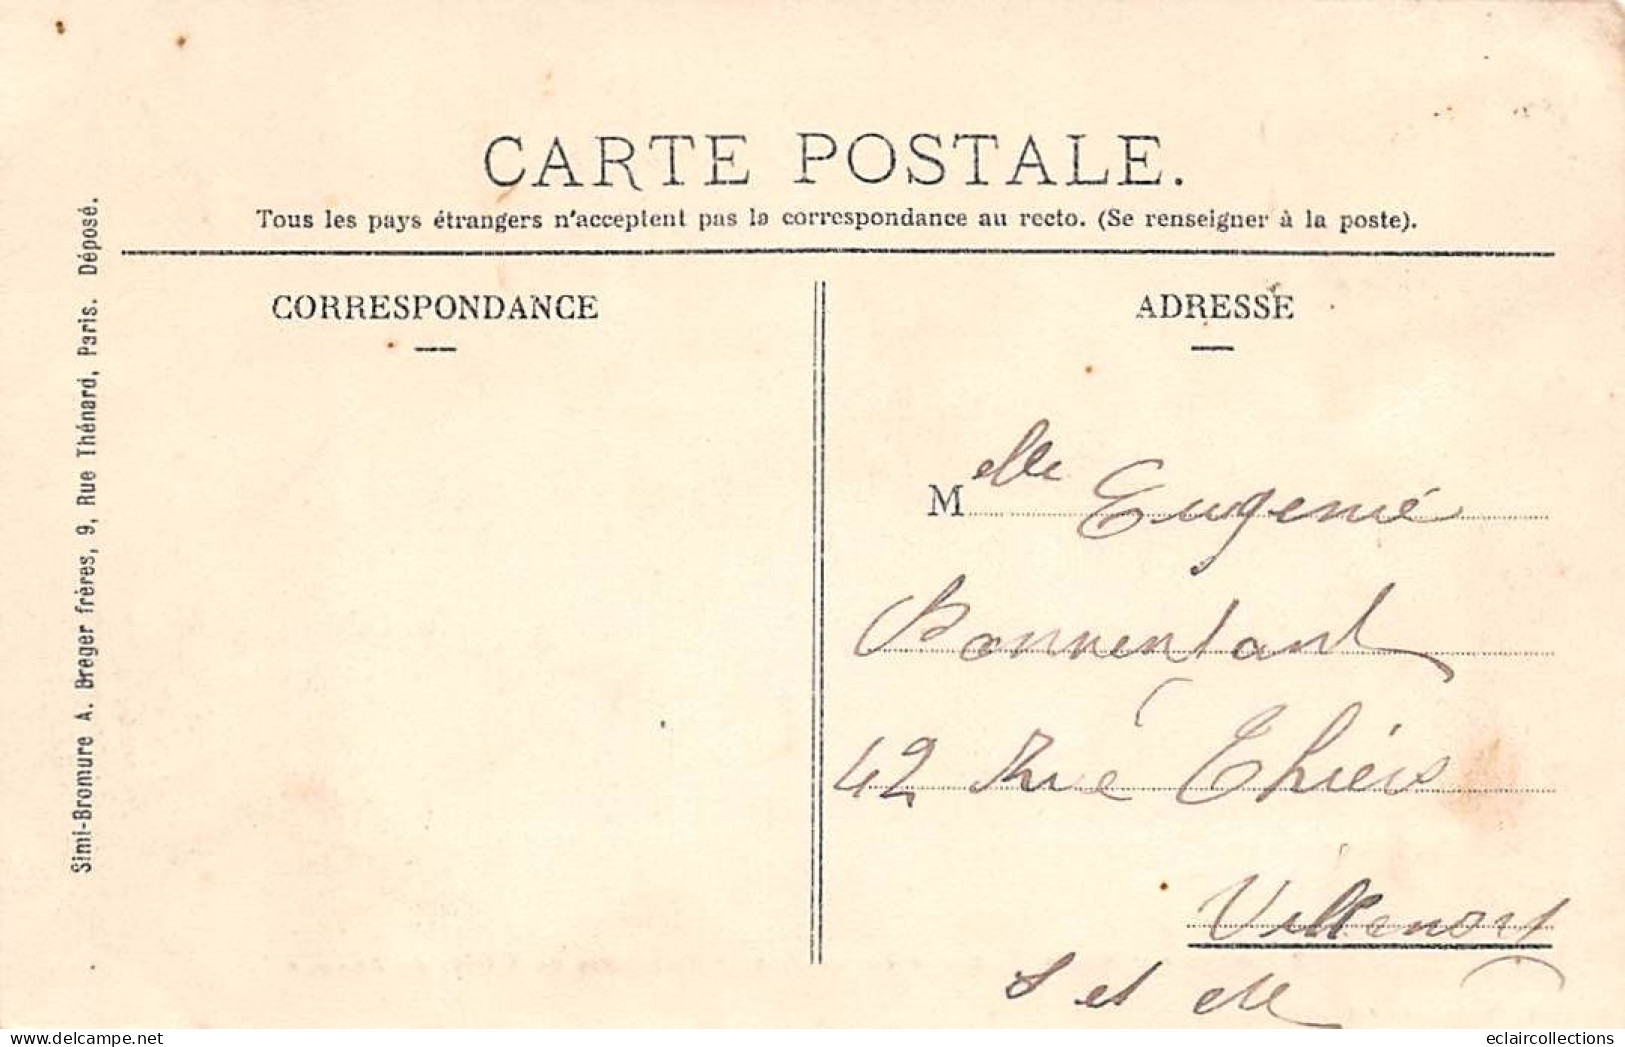 CARTE POSTALE.
Tous les pays étrangers n'acceptent pas la correspondance au recto. (Se renseigner à la poste).
Simi-Bromure A. Breger frères, 9, Rue Thénard, Paris. Déposé.
CORRESPONDANCE
ADRESSE
Melle Eugenie
Bonnentant
42 Rue Thiers
S et
eclaircollections